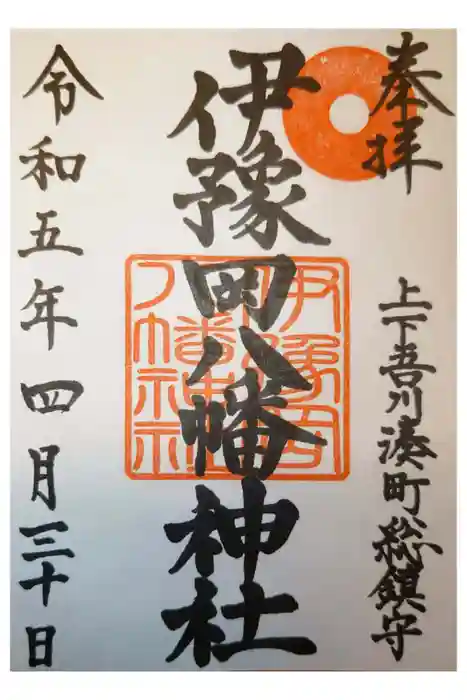 奉拝
上下吾川湊町総鎮守
伊豫岡八幡神社
令和五年四月三十日